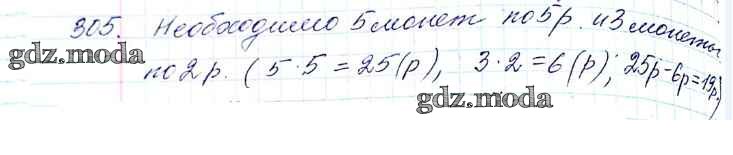 305. Необходимо 5 монет по 5р. и 3 монеты
gdz.moda
по 2 р. ( 5 · 5 = 25 (р), 3 · 2 = 6 (р); 25р - 6р = 19р.)
gdz.moda